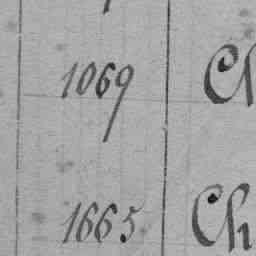 1069 Ch
1665 Ch